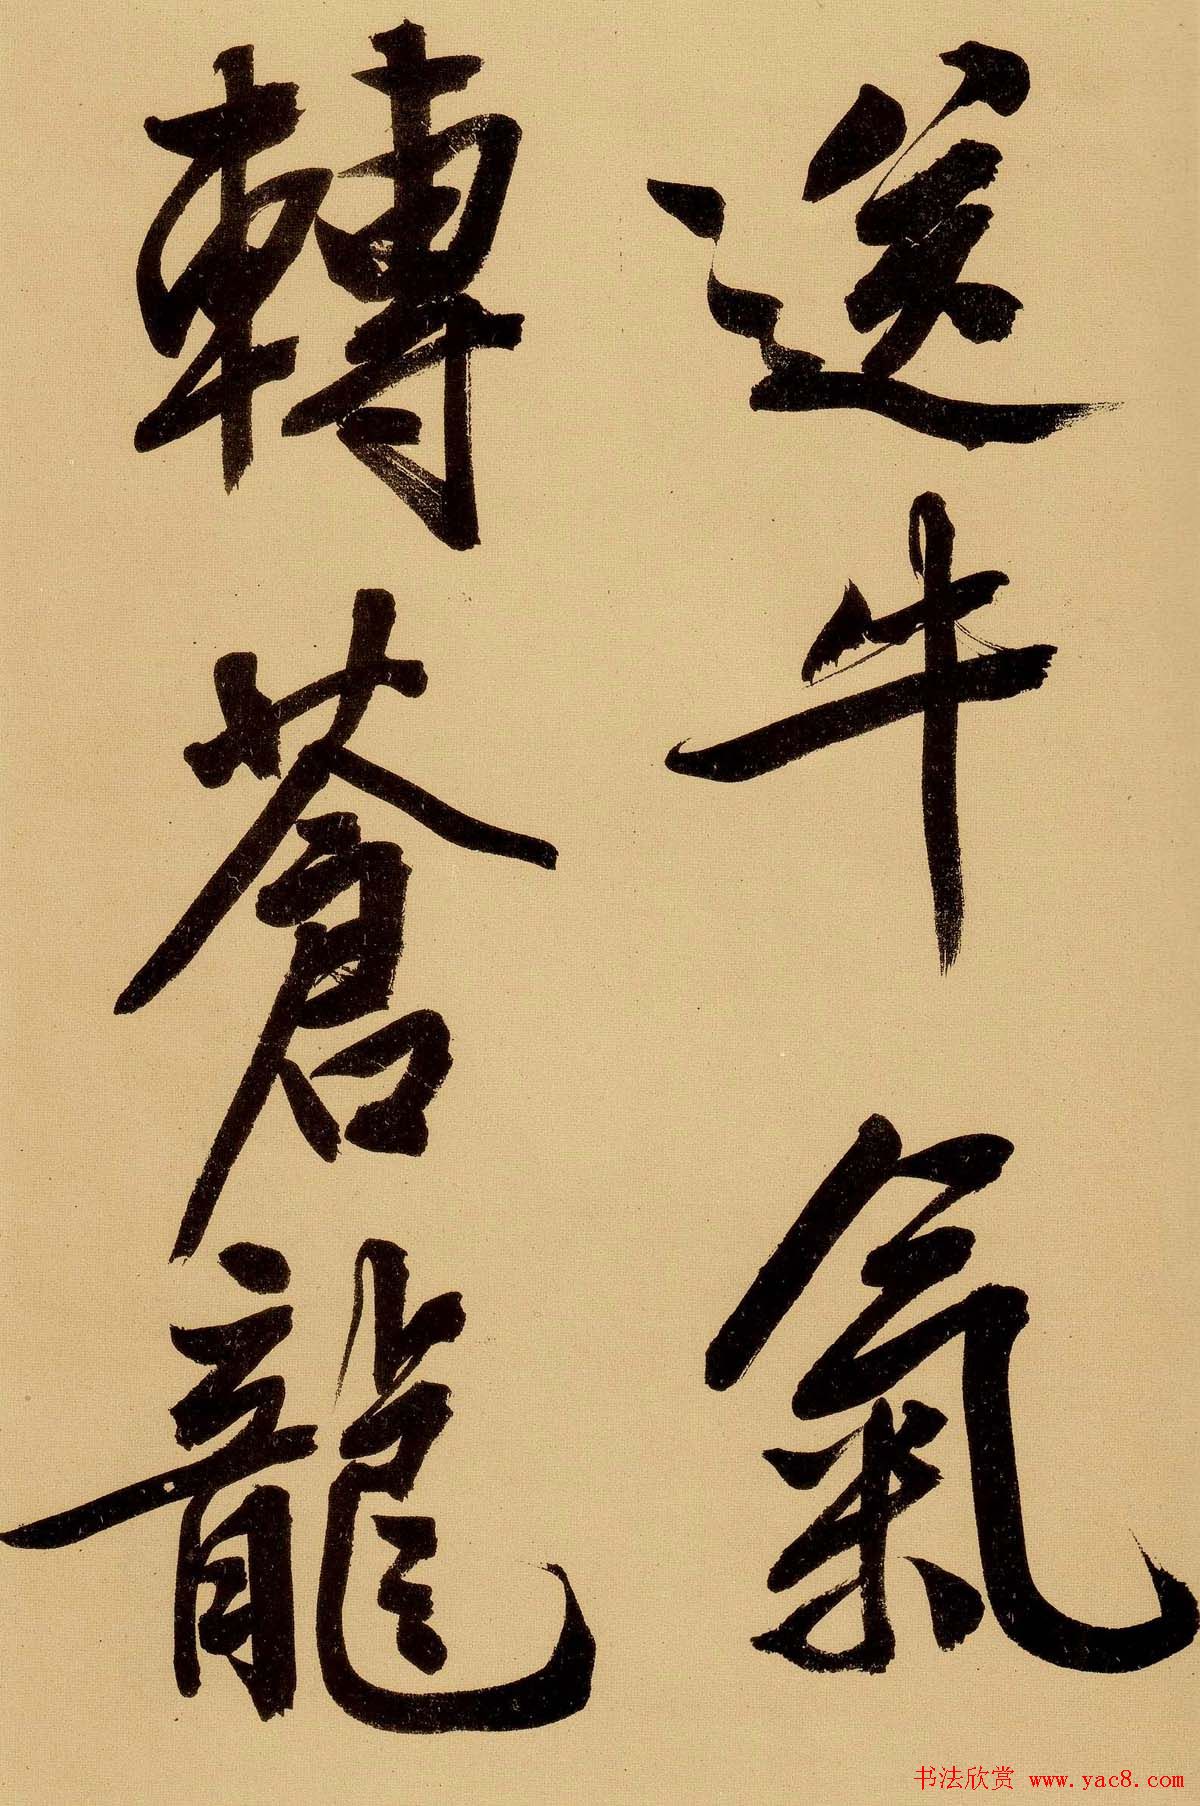 送牛氣
轉蒼龍
书法欣赏 www.yac8.com